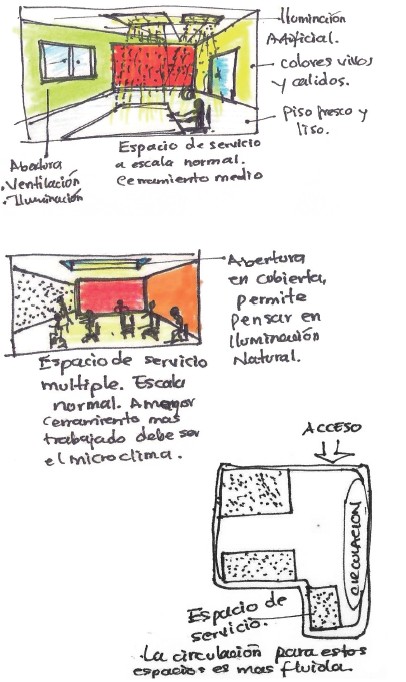 Iluminación
Artificial.
colores vivos
y calidos.
Piso fresco y
liso.
Abertura
.Ventilación
.Iluminación
Espacio de servicio
a escala normal.
Cerramiento medio
Abertura
en cubierta,
permite
pensar en
Iluminación
Natural.
Espacio de servicio
multiple. Escala
normal. A mayor
cerramiento mas
trabajado debe ser
el microclima.
ACCESO
CIRCULACION
Espacio de
servicio.
.La circulación para estos
espacios es mas fluida.